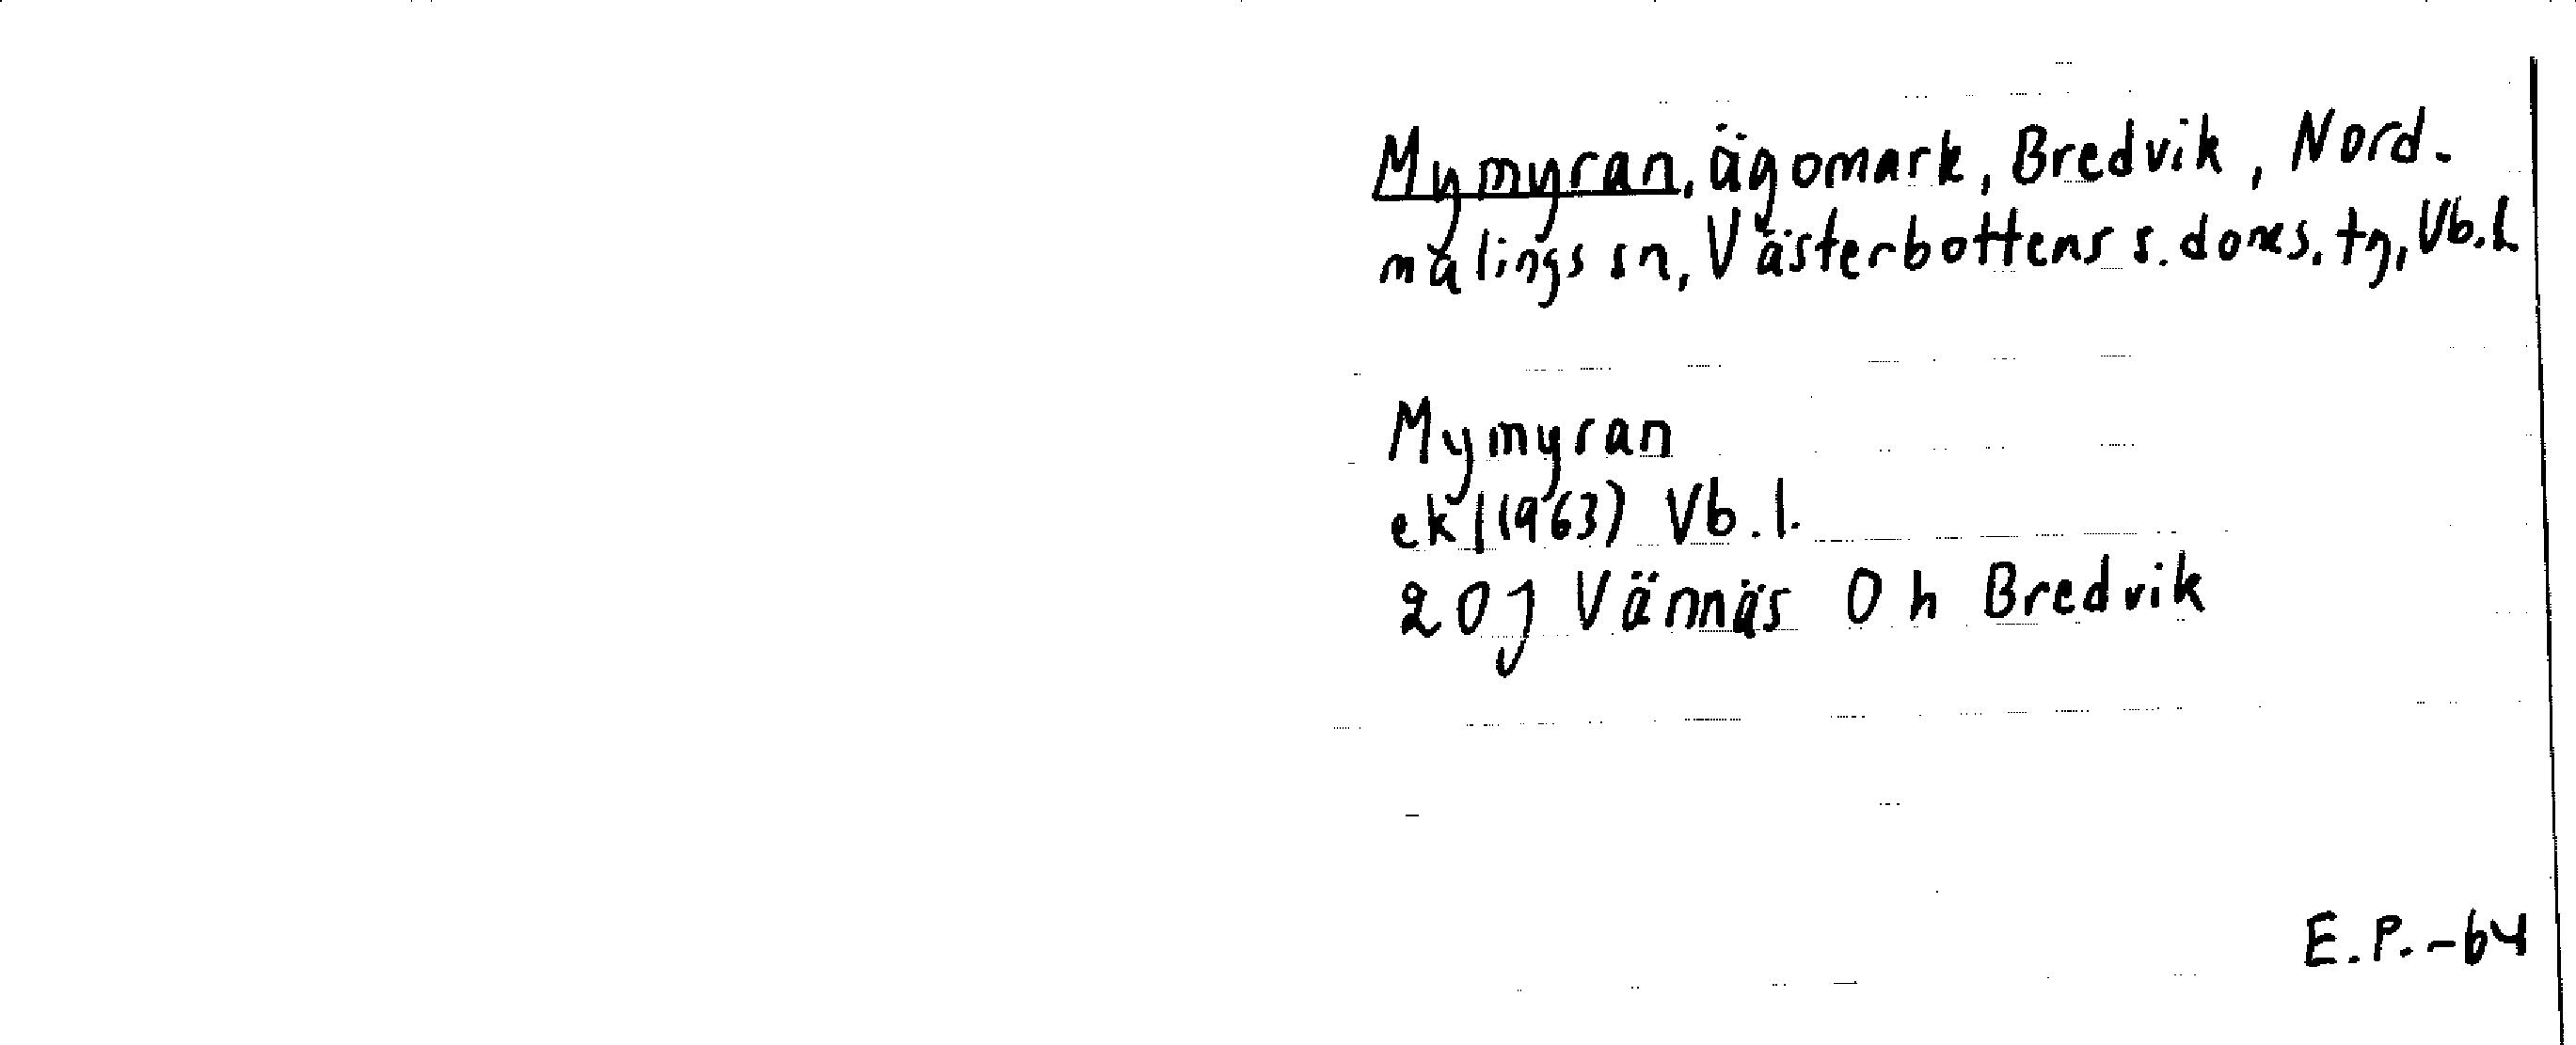 Mymyran, ägomark, Bredvik, Nord-
malings sn, Västerbottens s. doms. tg, Vb.l
Mymyran
ek (1963) Vb.l.
20J Vännäs 0 h Bredvik
E.P.-64